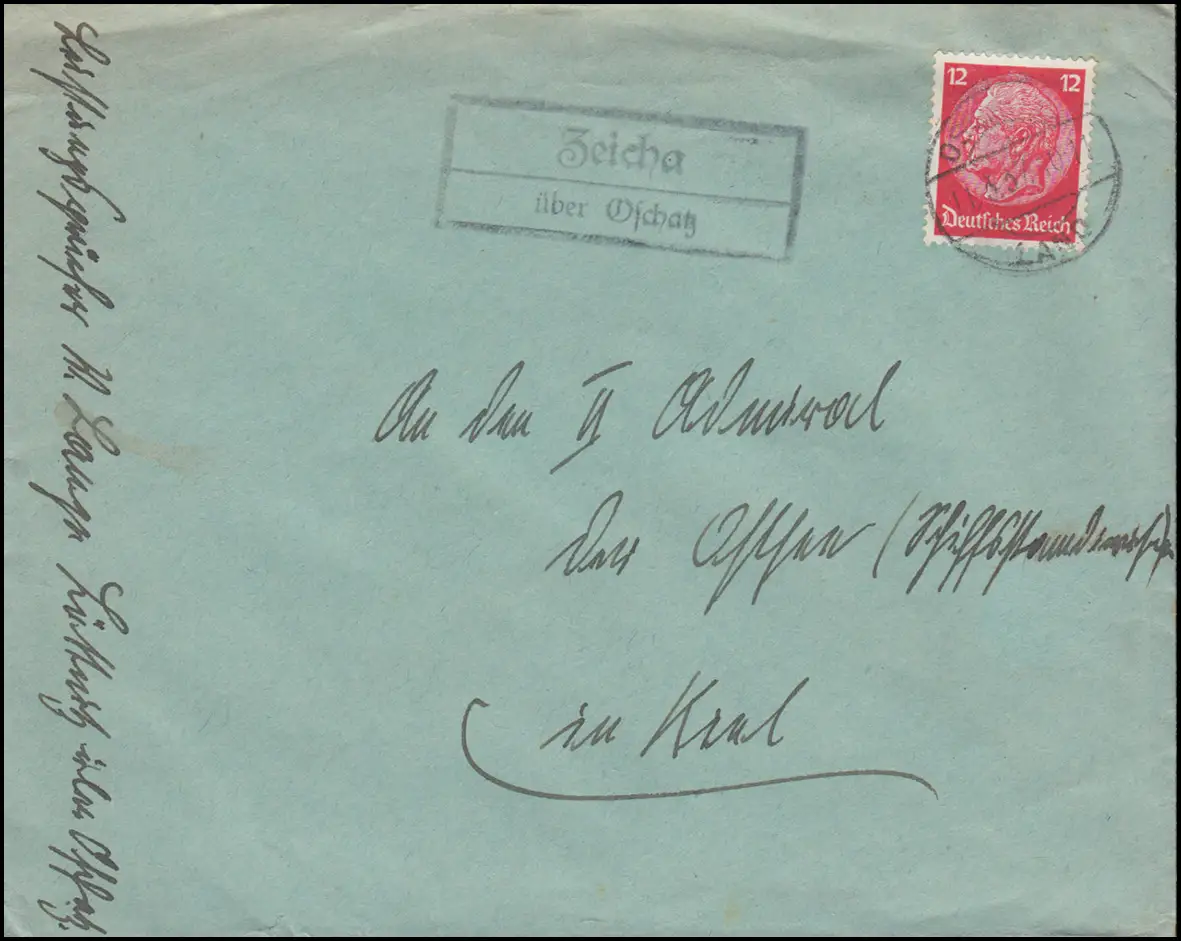 Zeicha
über Oschatz
12 12
Deutsches Reich
LAND
An den II Admiral
der Ostsee (Schiffsstammdivision)
in Kiel
W Lange Lüttnitz über Oschatz.